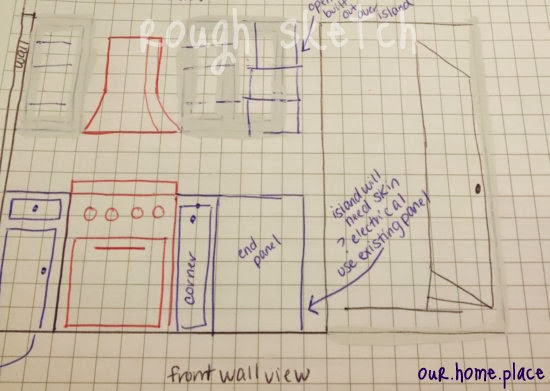 rough sketch
open
built
out over
island
wall
island will
need skin
? electrical
use existing panel
end
panel
corner
front wall view
our.home.place